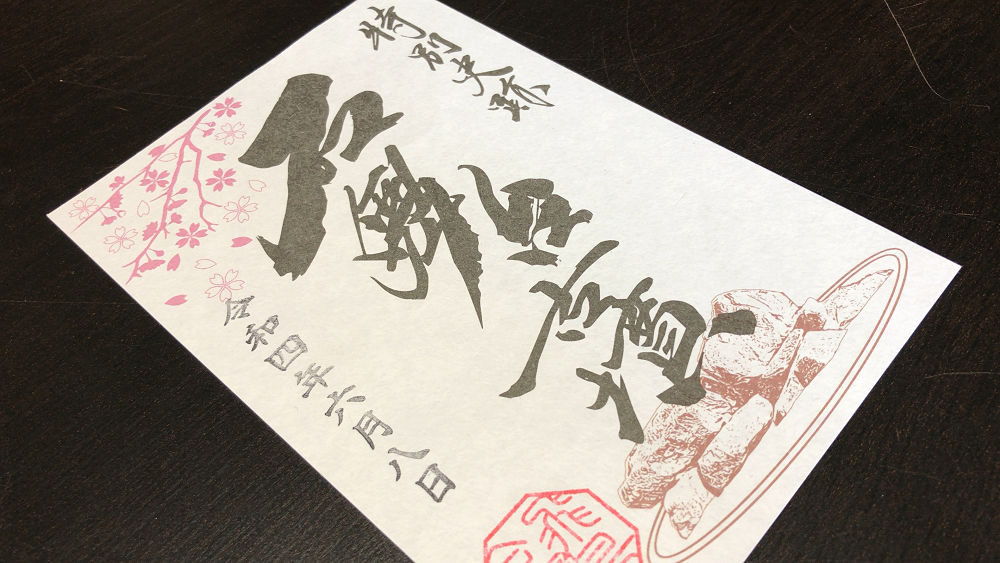 特別史跡
石舞台古墳
令和四年六月八日